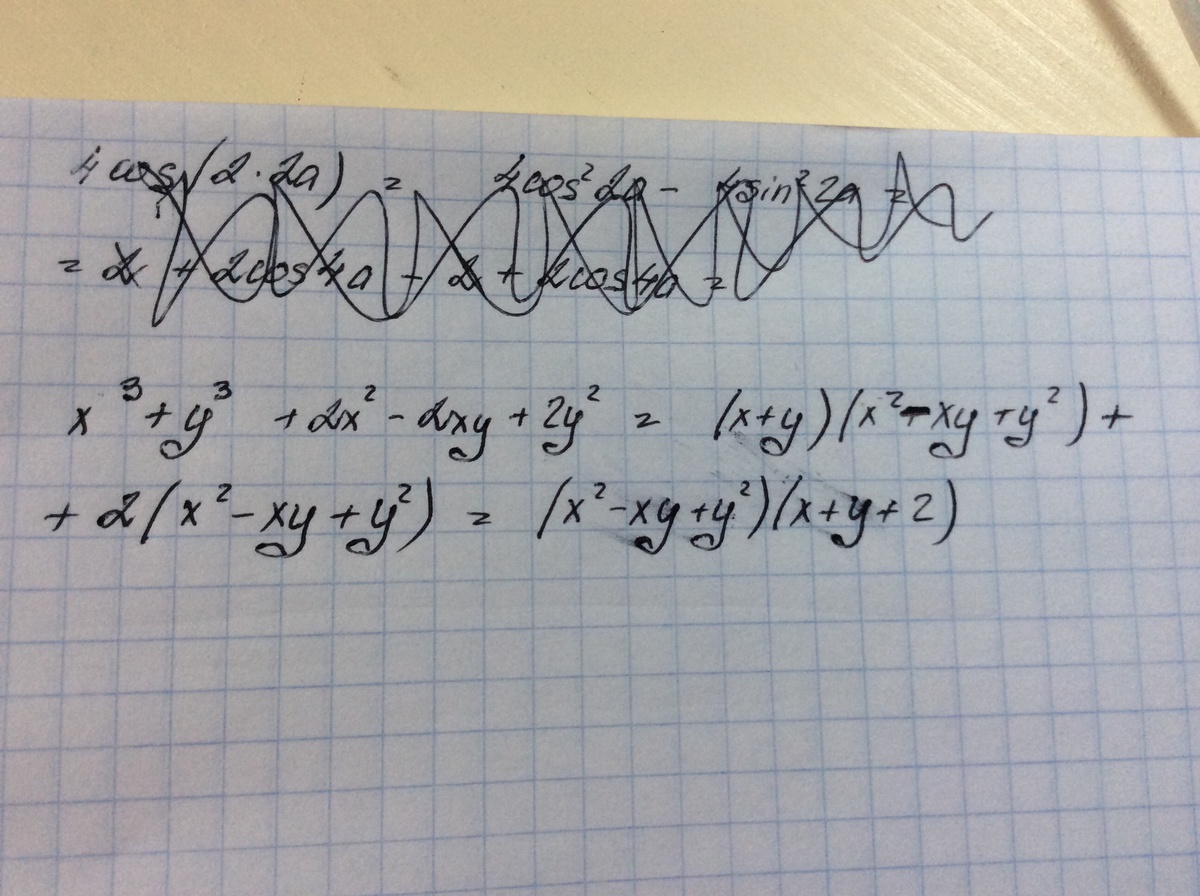 4 cos(2·2a) = 4cos² 2a - 4sin² 2a =
= 2 + 2cos4a - 2 + 2cos4a =
x³ + y³ + 2x² - 2xy + 2y² = (x+y)(x² - xy + y²) +
+ 2(x² - xy + y²) = (x² - xy + y²)(x + y + 2)